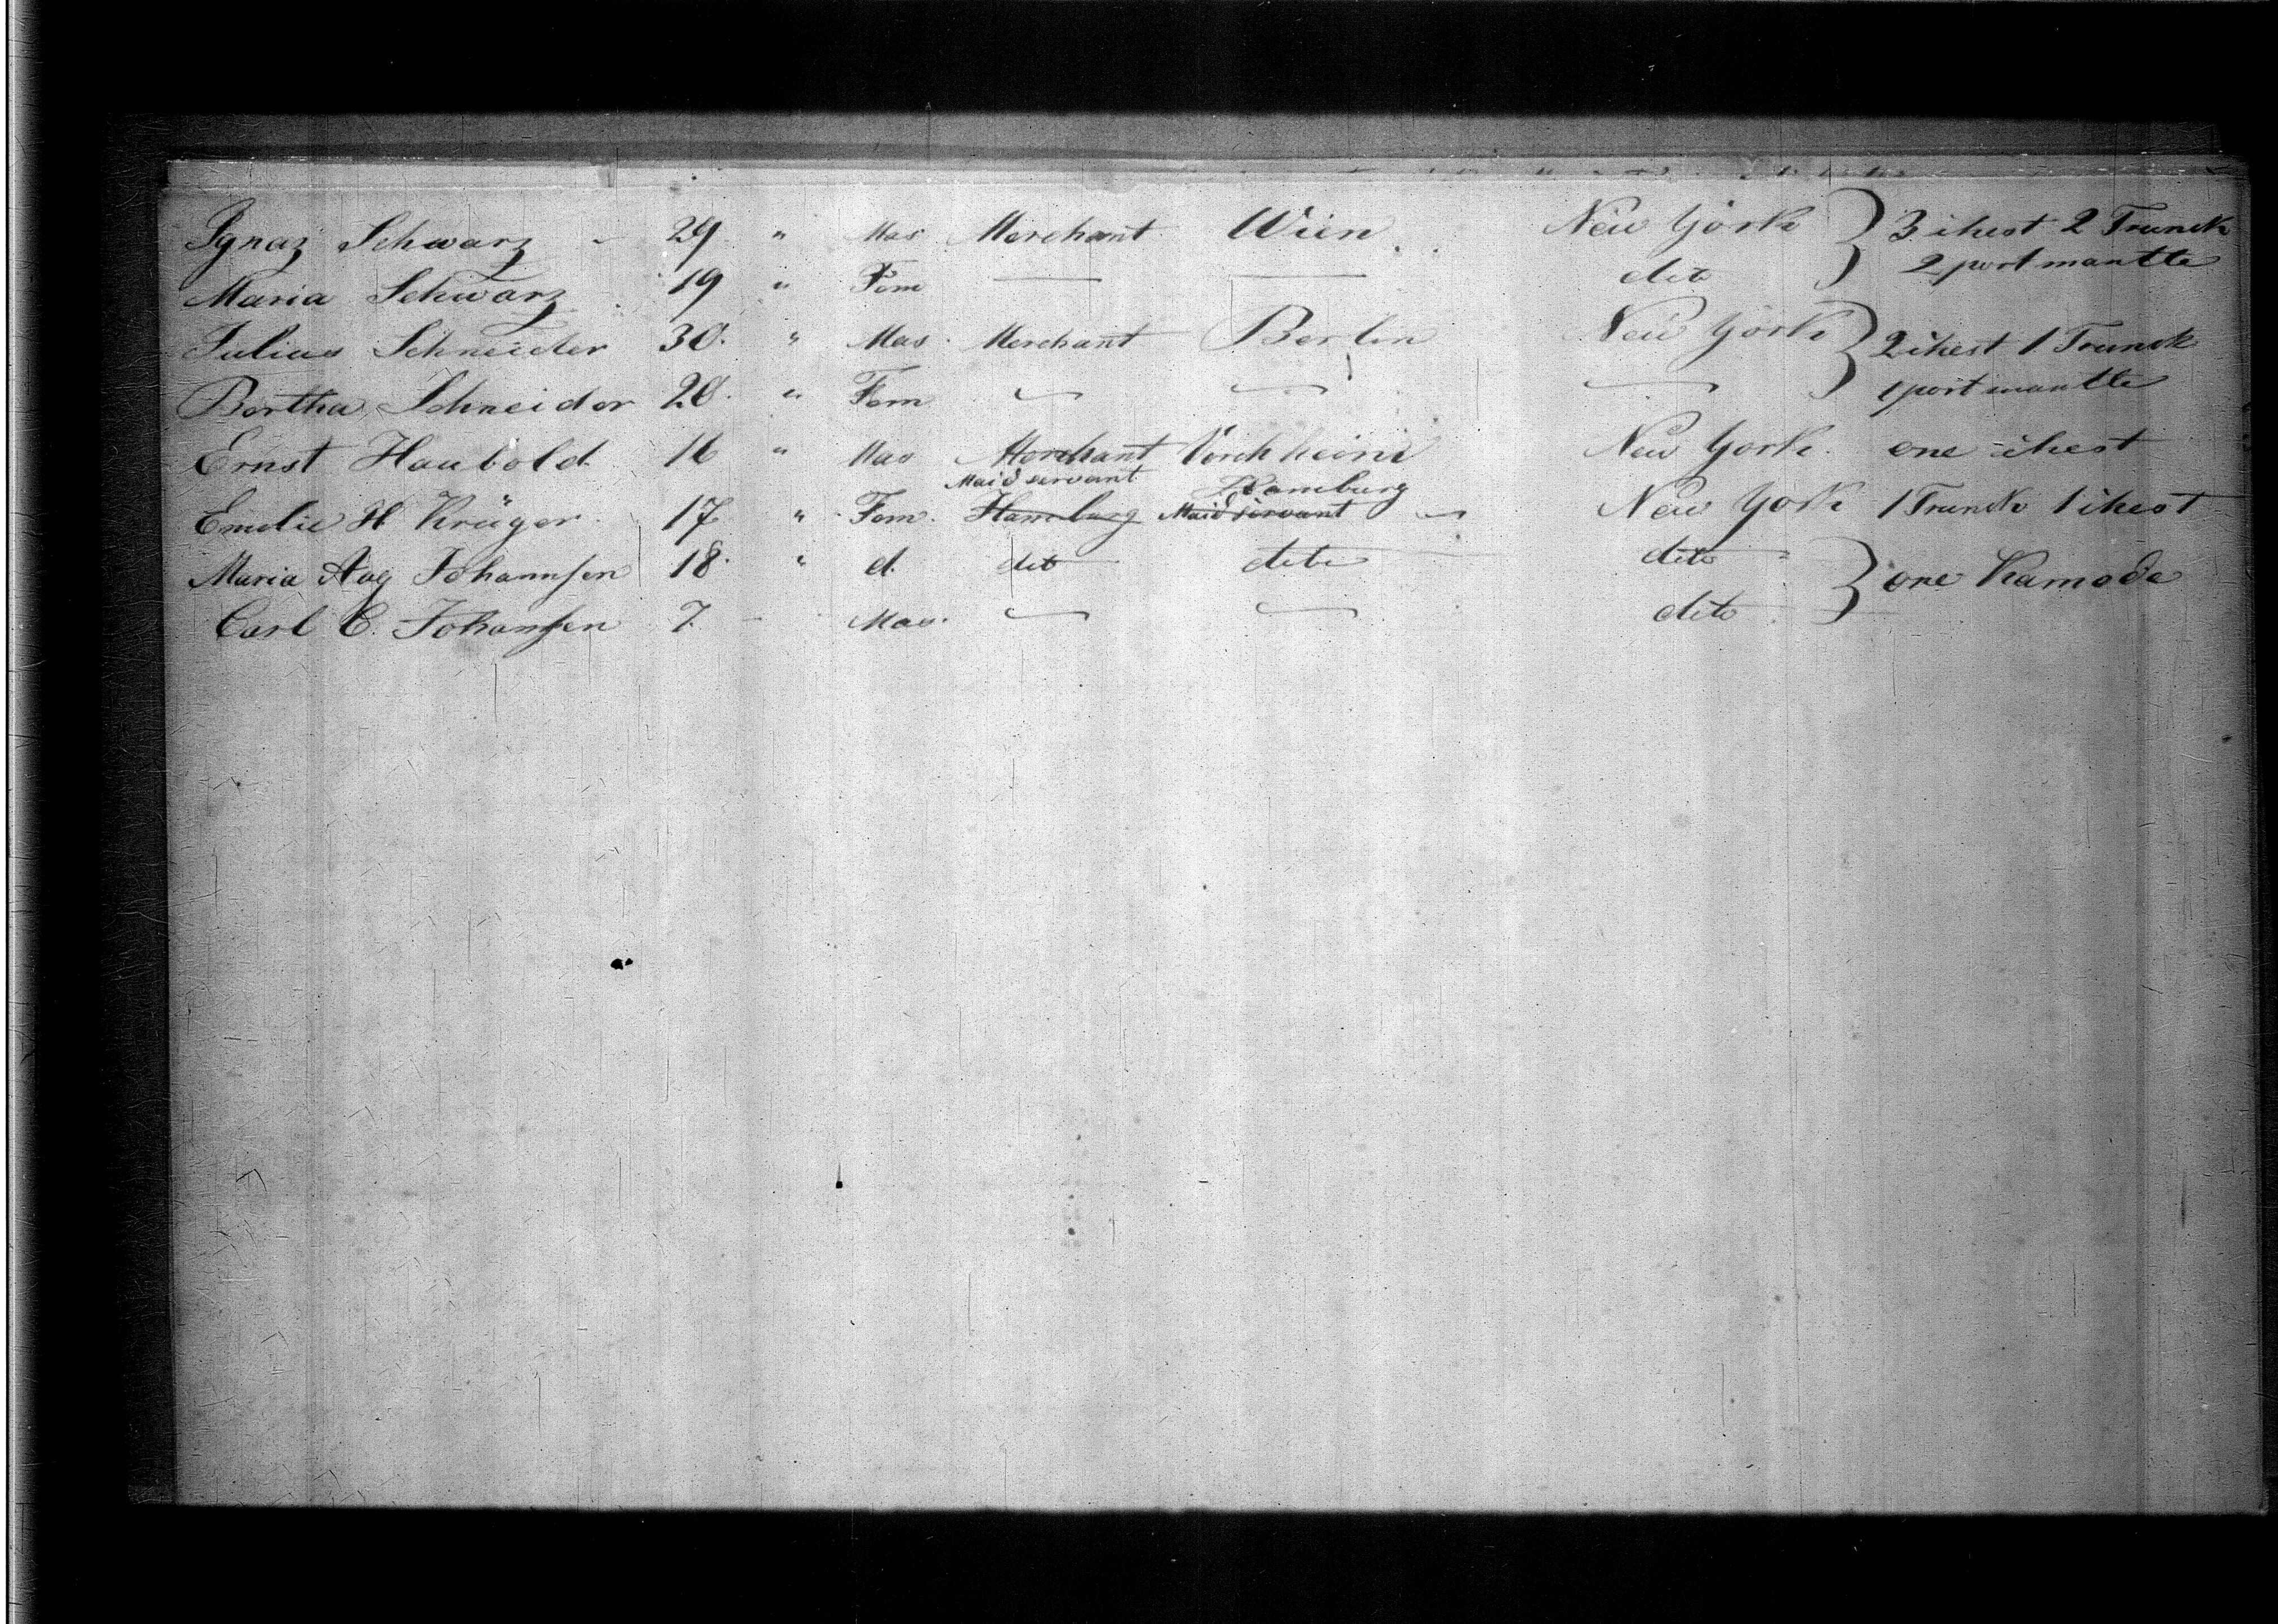 Ignaz Schwarz - 29 " Mas Merchant Wien New York } 3 chest 2 Trunck
2 portmantle
Maria Schwarz 19 " Fem — — dito
Julius Schneider 30. " Mas. Merchant Berlin New York } 2 chest 1 Trunck
1 portmantle
Bertha Schneider 20. " Fem — — —
Ernst Haubold 16 " Mas Merchant New York. one chest
Maid servant Hamburg
Emelie H Krüger 17 " Fem. Hamburg Maid servant — New York 1 Trunck 1 chest
Maria Aug Johannsen 18. " d. dito dito dito } one Kamode
Carl C. Johansen 7. - Mas. — — dito